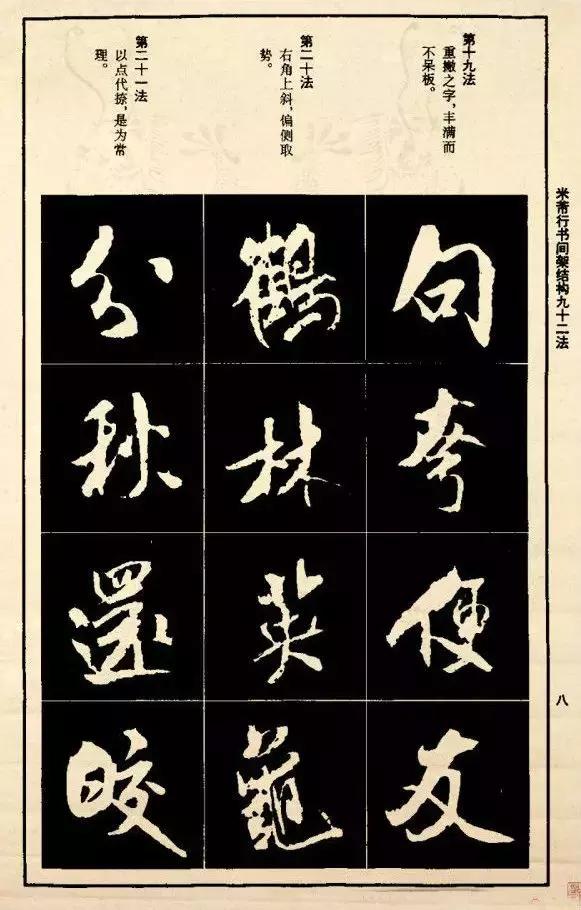 米芾行书间架结构九十二法
八
第十九法
重撇之字，丰满而
不呆板。
句
便
友
第二十法
右角上斜，偏侧取
势。
鶴
林
英
第二十一法
以点代捺，是为常
理。
分
秋
還
皎